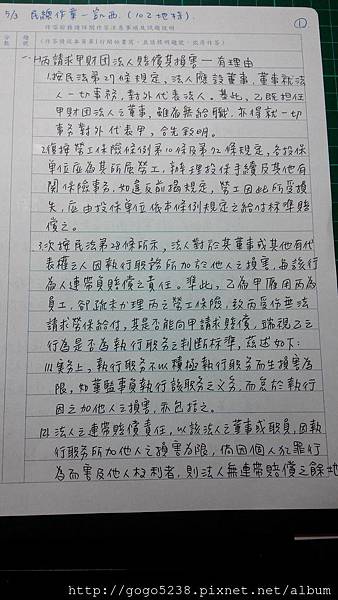 5/3 民總作業一 宜西.(102地特).
①
一、(一)丙請求甲財団法人賠償其損害一有理由
1.按民法第27條規定,法人應設董事,董事就法
人一切事務,對外代表法人。基此,乙既担任
甲財団法人之董事,雖為無給職,亦得就一切
事務對外代表甲,合先敘明。
2.復按勞工保險條例第10條及第72條規定,各投保
單位应為其所屬勞工,辦理投保手續及其他有
関保險事務,如違反前揭規定,勞工因此所受損
失,应由投保單位依本條例規定之給付标準賠
償之。
3.次按民法第28條所示,法人對於其董事或其他有代
表權之人因執行職務所加於他人之損害,与該行
為人連帶負賠償之責任。準此,乙為甲僱用丙為
員工,卻疏未办理丙之勞工保險,致丙受伤無法
請求勞保給付,其是否能向甲請求賠償,端視乙之
行為是否為執行職务之判断标準,茲述如下:
(1)業务上,執行职务不以積極執行职务而生損害為
限,如董監事負執行該职务之义务,而怠於執行
因之加他人之損害,亦包括之。
(2)法人之連帶賠償責任,以該法人之董事或职員,因執
行职務所加他人之損害為限,倘因個人犯罪行
為而害及他人权利者,則法人無連帶賠償之餘地
http://gogo5238.pixnet.net/album